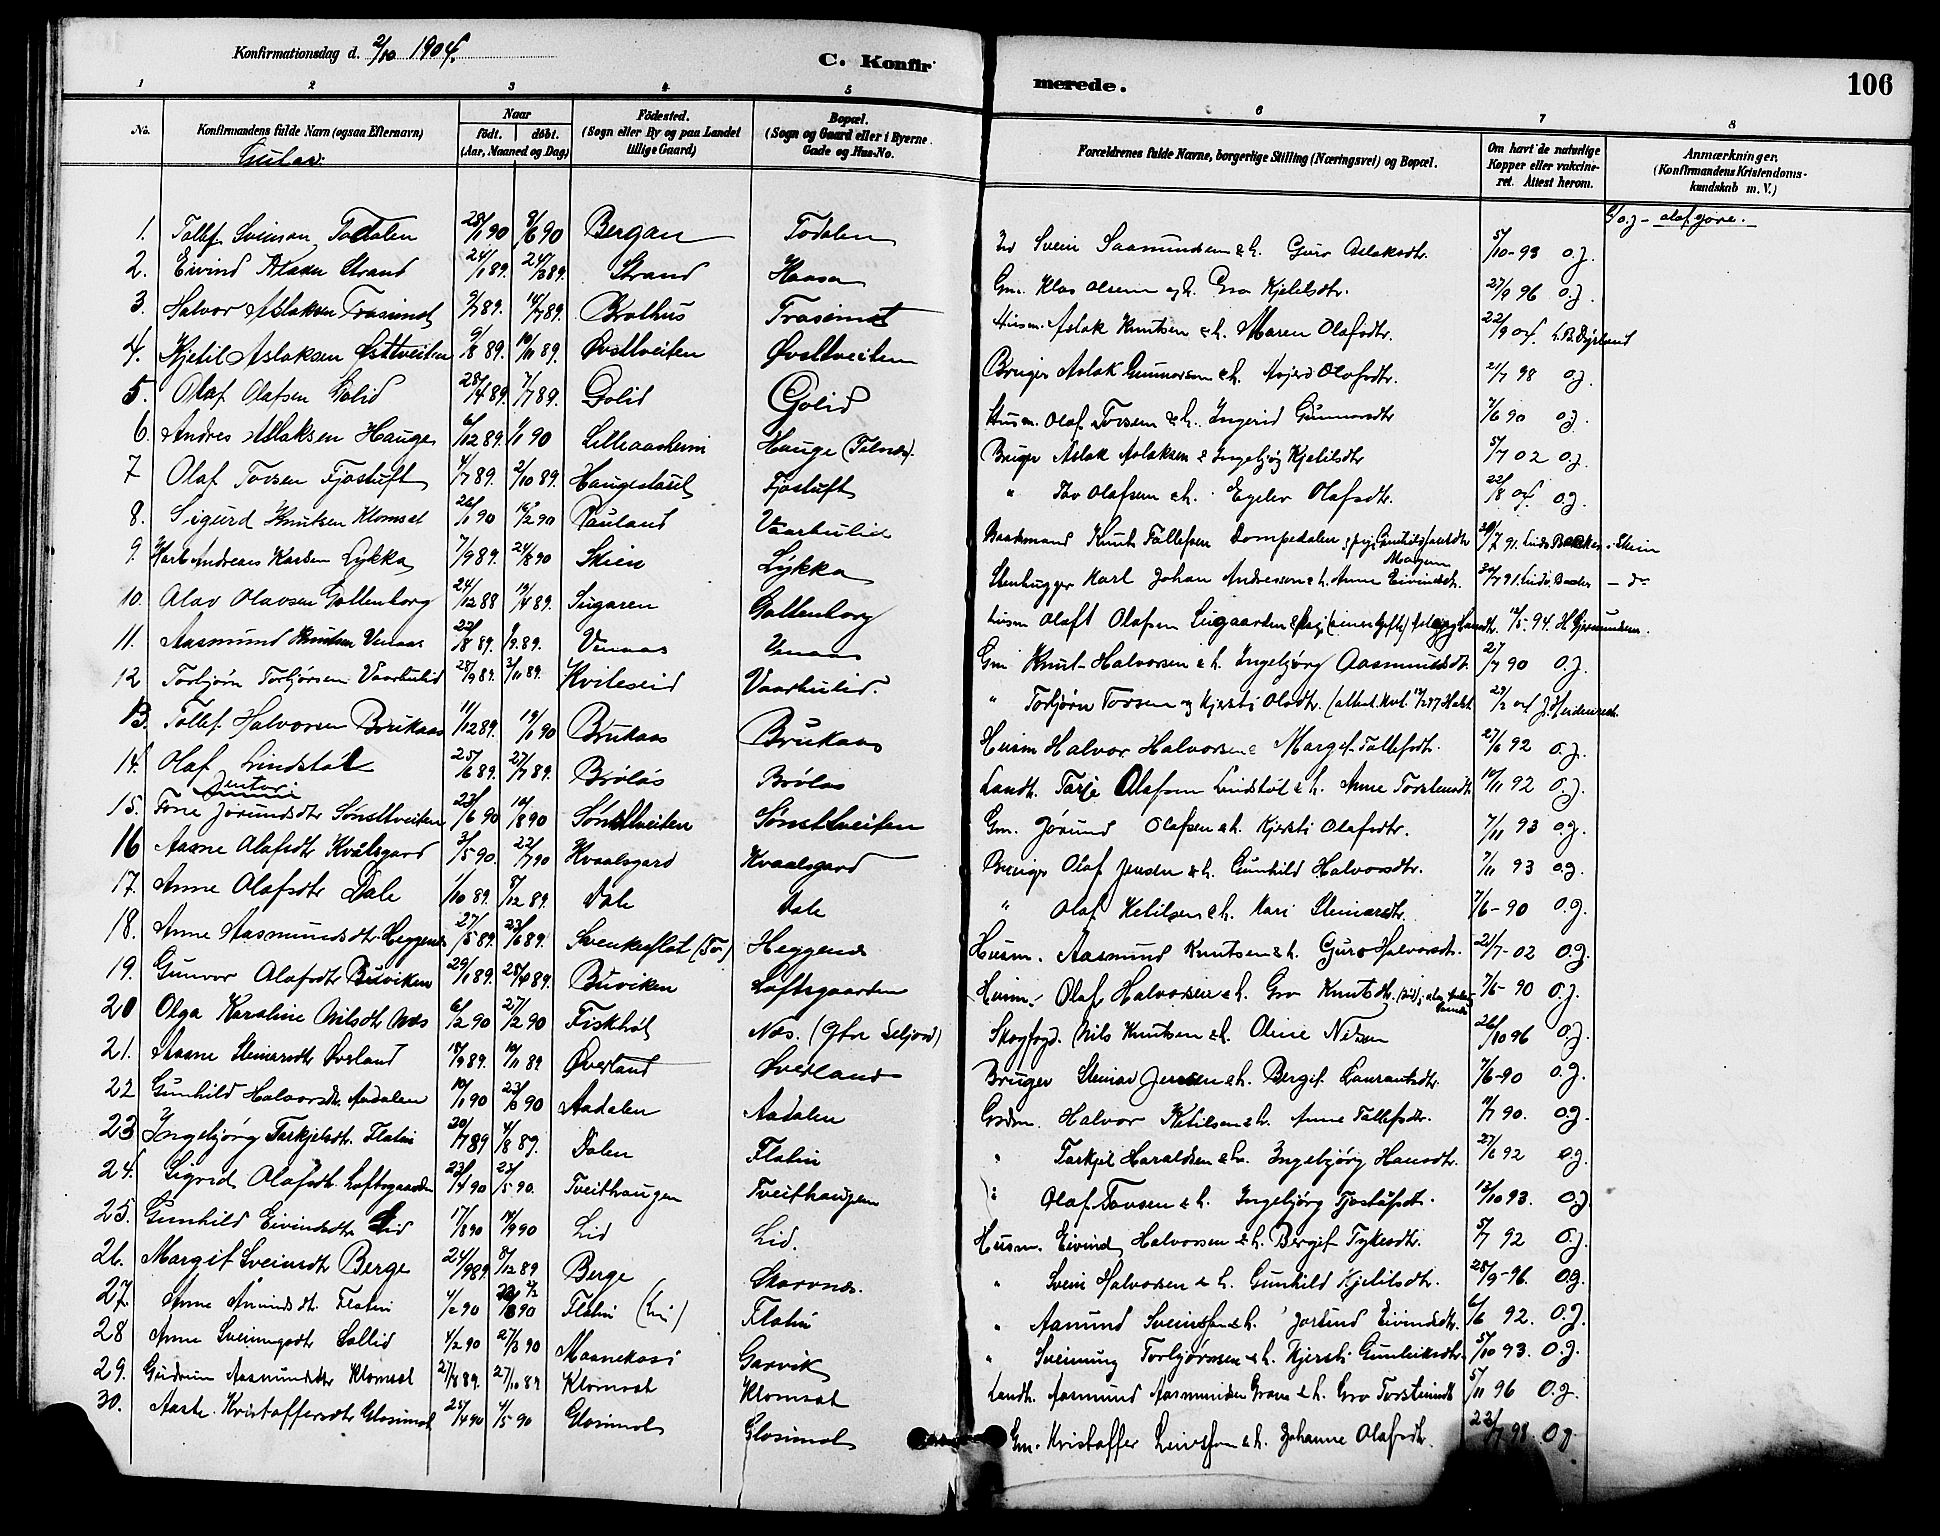 Konfirmationsdag d. 2/10 1904.
C. Konfir
merede.
106
1 2 3 4 5 6 7 8
No.
Konfirmandens fulde Navn (ogsaa Efternavn)
Naar
født. døbt.
(Aar, Maaned og Dag)
Fødested.
(Sogn eller By og paa Landet
tillige Gaard)
Bopæl.
(Sogn og Gaard eller i Byerne
Gade og Hus-No.
Forældrenes fulde Navne, borgerlige Stilling (Næringsvei) og Bopæl.
Om havt de naturlige
Kopper eller vakcine-
ret. Attest herom.
Anmærkninger.
(Konfirmandens Kristendoms-
kundskab m. V.)
o.j - olaf gjøre.
1. Tollef Svenson Todalen 28/1 90 8/6 90 Bergan Todalen Svein Saamundsen & h. Guro Aslaksdtr. 5/10-93 O.J.
2. Eivind Strand 24/1 89. 24/3 89. Strand Haasa Gm. Klas Olsen og h. Gro Kjetilsdtr. 27/9 96 O.J.
3. Halvor Aslaksen Trasimot 2/7 89. 14/7 89. Brothus Trasimot Husm. Aslak Knutsen & h. Maren Olafsdtr. 22/9 04.
4. Kjetil Aslaksen Østtveiten 9/8 89. 10/11 89. Øvsttveiten Øvsttveiten Bruger Aslak Gunnarsen & h. Olafsdtr. 2/7 98 O.J.
5. Olaf Olafsen Golid 28/4 89. 7/7 89. Golid Golid Husm. Olaf Torsen & h. Ingerid Gunnarsdtr 7/6 90 O.J.
6. Andres Aslaksen Hauge 6/12 89. 1/1 90 Lilleaasheim Hauge Bruger Aslak Aslaksen & Ingebjøg Kjetilsdtr 5/7 02 O.J.
7 Olaf Torsen Fjøstuft 4/7 89. 2/10 89. Haugestaul Fjøstuft " Tov Olafsen & h. Egelev Olafsdtr. 22/8 04. O.J.
8. Sigurd Knutsen Klomset 26/1 90 16/2 90 Rauland Vaarhulid Baatsmand Knut Tollefsen Dompedalen
9. Karl Andreas Karlsen Lykka 7/9 89. 24/8 90 Skien Lykka Stenhugger Karl Johan Andressen & h. Anne Eivindsdtr.
10. Olav Olavsen Gollenborg 24/12 88 19/4 89. Sugaren Gollenborg Husm Olaft Olafsen 12/5. 94.
11. Aasmund Knutsen Venaas 22/8 89. 1/9 89. Venaas Venaas Gm. Knut Halvorsen & h. Ingebjørg Aasmundsdt. 27/7 90 O.J.
12 Torbjørn Torbjørsen Vaarhulid 28/9 89. 3/11 89. Kviteseid Vaarhulid. " Torbjørn Torsen og Kjersti Olsdtr.
13. Tollef Halvorsen Brukaas 11/12 89. 19/1 90 Brukaas Brukaas Husm Halvor Halvorsen & Margit Tollefsdtr. 27/6 92 O.J.
14. Olaf Lindstøl 25/6 89. 27/7 89. Brølos Brølos Landh. Tarje Olafsen Lindstøl & h. Anne Torstensdtr 10/11 92 O.J.
Jenter
15. Tone Jørundsdtr Sønsttveiten 23/6 90 10/8 90 Sønsttveiten Sønsttveiten Gm. Jørund Olafsen & h. Kjersti Olafsdtr. 7/11 93 O.J.
16 Aasne Olafsdtr Kvålsgard 3/5 90. 22/7 90 Kvaalsgard Kvaalsgard Bruger Olaf Jensen & h. Gunhild Halvorsdtr. 7/11 93 O.J.
17. Anne Olafsdtr Dale 1/10 89. 8/12 89. Dale Dale " Olaf Ketilsen & h. Kari Steinarsdtr. 7/6-90 O.J.
18. Anne Aasmundsdtr. Heggenes 27/5 89. 23/6 89. Svenkeflot Heggenes Husm. Aasmund Knutsen & h. Guro Halvorsdtr. 21/7-02 O.J.
19. Gunvor Olafsdtr Buviken 29/1 89. 28/4 89. Buviken Loftsgaarden Husm. Olaf Halvorsen & h. Gro Knutsdtr. 7/6-90 O.J.
20 Olga Karoline Nilsdtr Næs 6/2 90 27/2 90 Fiskhol Næs. (Øfre Seljord) Skogfogd. Nils Knutsen & h. Oline Nilsen 26/10 96 O.J.
21. Aasne Steinarsdtr Øverland 18/9 89. 10/11 89 Øverland Øverland Bruger Steinar Jensen & h. Bergit Laurantsdtr. 7/6-90 O.J.
22 Gunhild Halvorsdtr. Aadalen 10/1 90 23/3 90 Aadalen Aadalen Grdm. Halvor Ketilsen & h. Anne Tollefsdtr. 11/7 90. O.J.
23 Ingebjørg Tarkjelsdtr. Flatin 20/7 89 4/8 89. Dalen Flatin " Tarkjel Haraldsen & h. Ingebjørg Hansdtr. 27/6 92 O.J.
24. Sigrid Olafsdtr. Loftsgaarden 23/4 90 23/5 90. Tveithaugen Tveithaugen " Olaf Tovsen & h. Ingebjørg Tjostufsdtr. 12/10 93. O.J.
25. Gunhild Eivindsdtr Lid 17/8 90 14/9 90 Lid Lid. Husm. Eivind Halvorsen & h. Bergit Tykesdtr. 5/7 92 O.J.
26. Margit Sveinsdtr Berge 24/9 89. 8/12 89 Berge Skarvnes. " Svein Halvorsen & h. Gunhild Kjetilsdtr. 28/9-96. O.J.
27. Anne Amundsdt. Flatin 4/2 90 Flatin Flatin " Aamund Sveinsson & h. Jørund Eivindsdtr. 6/6 92. O.J.
28 Anne Sveinungsdtr Sollid 4/2 90 27/3 90 Maanekasi Garvik " Sveinung Torbjørnsen & h. Kjersti Gunleiksdtr. 5/10 93. O.J.
29. Gudrun Aasmundsdtr Klomsat 27/8 89. 27/10 89 Klomsat Klomsat Landh. Aasmund Aasmundsen Graver & h. Gro Torsteinsdtr 5/11 96 O.J.
30. Aaste Kristoffersdtr Glosimot 25/4 90 4/5 90 Glosimot Glosimot Gm. Kristoffer Leivsson & h. Johanne Olafsdtr. 22/7 98 O.J.